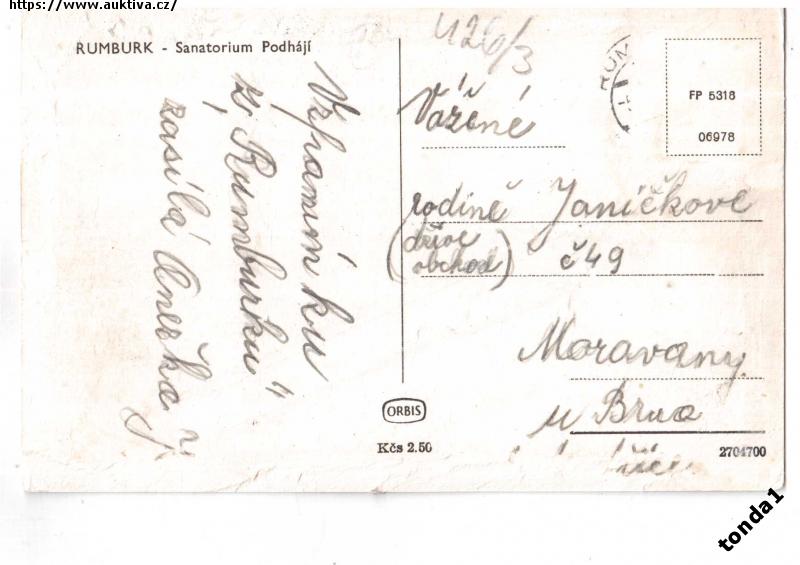 https://www.auktiva.cz/
RUMBURK - Sanatorium Podhájí
Vzpomínku
z Rumburku
zasílá Anežka J.
426/3
RUM
FP 5318
06978
Vážené
rodině Janíčkove
(dříve
obchod) č 49
Moravany
u Brna
ORBIS
Kčs 2.50
2704700
tonda1